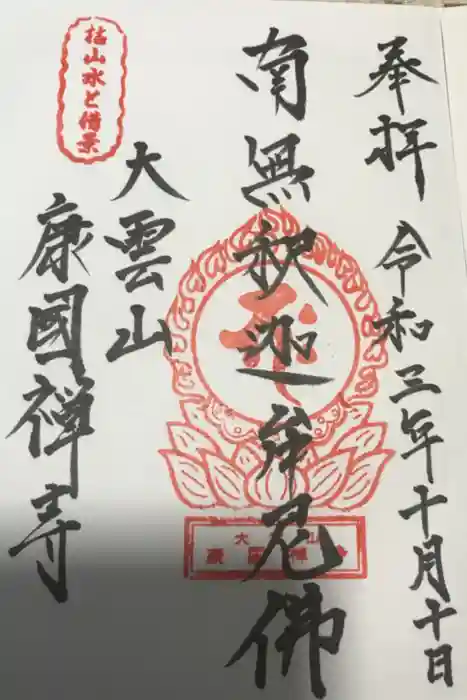 奉拝 令和三年十月十日
南無釈迦牟尼佛
大雲山
康國禅寺
枯山水と借景